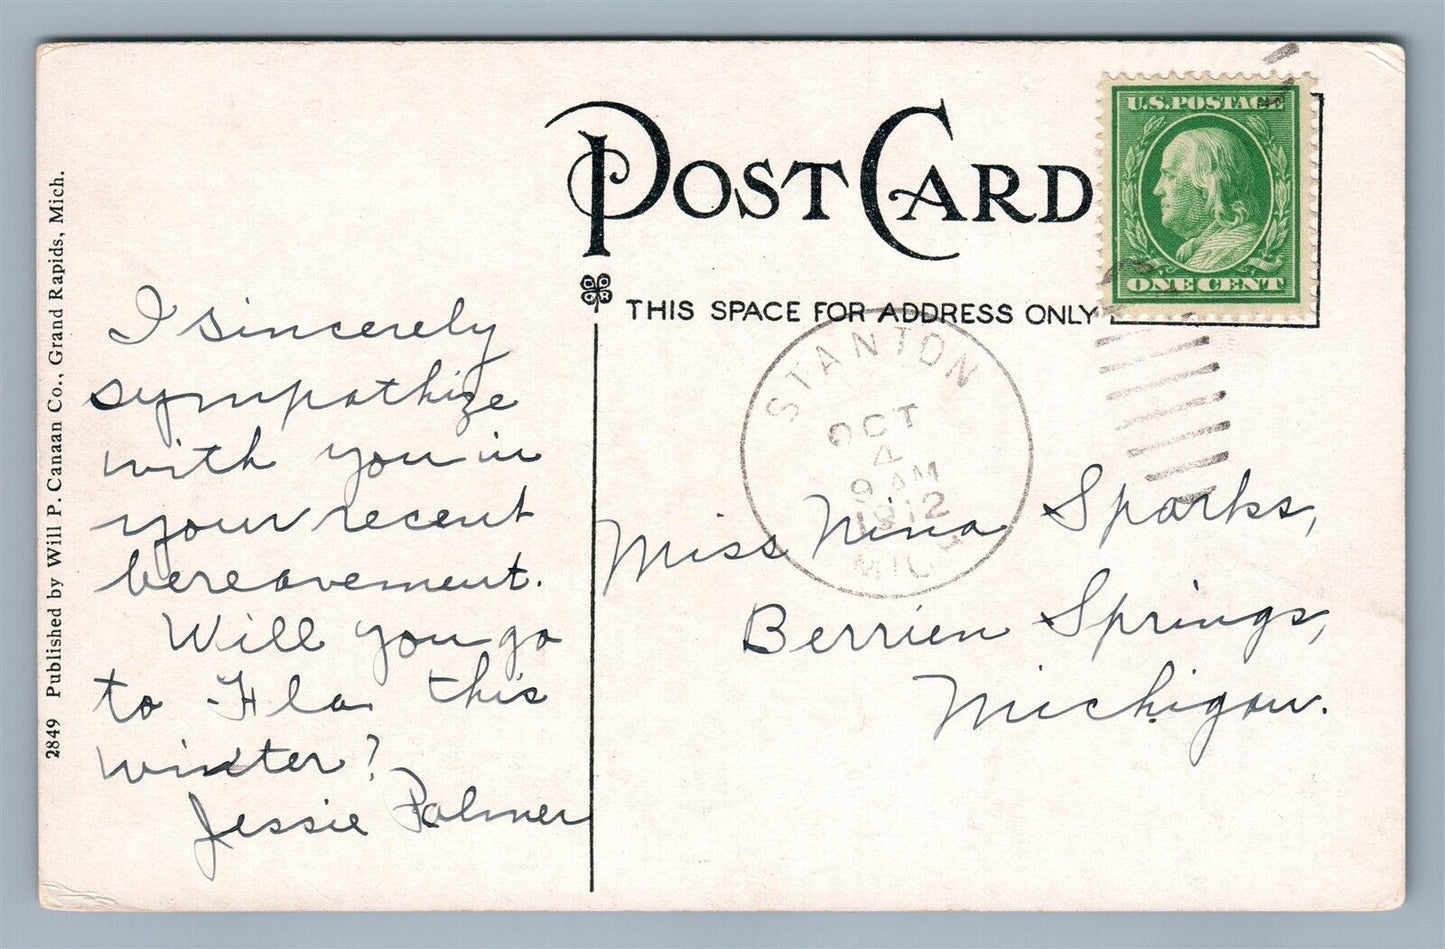 POST CARD
THIS SPACE FOR ADDRESS ONLY
U.S. POSTAGE
ONE CENT
STANTON
OCT
4
9 AM
1912
MICH
2849 Published by Will P. Canaan Co., Grand Rapids, Mich.
I sincerely
sympathize
with you in
your recent
bereavement.
Will you go
to Fla this
winter?
Jessie Palmer
Miss Nina Sparks,
Berrien Springs,
Michigan.